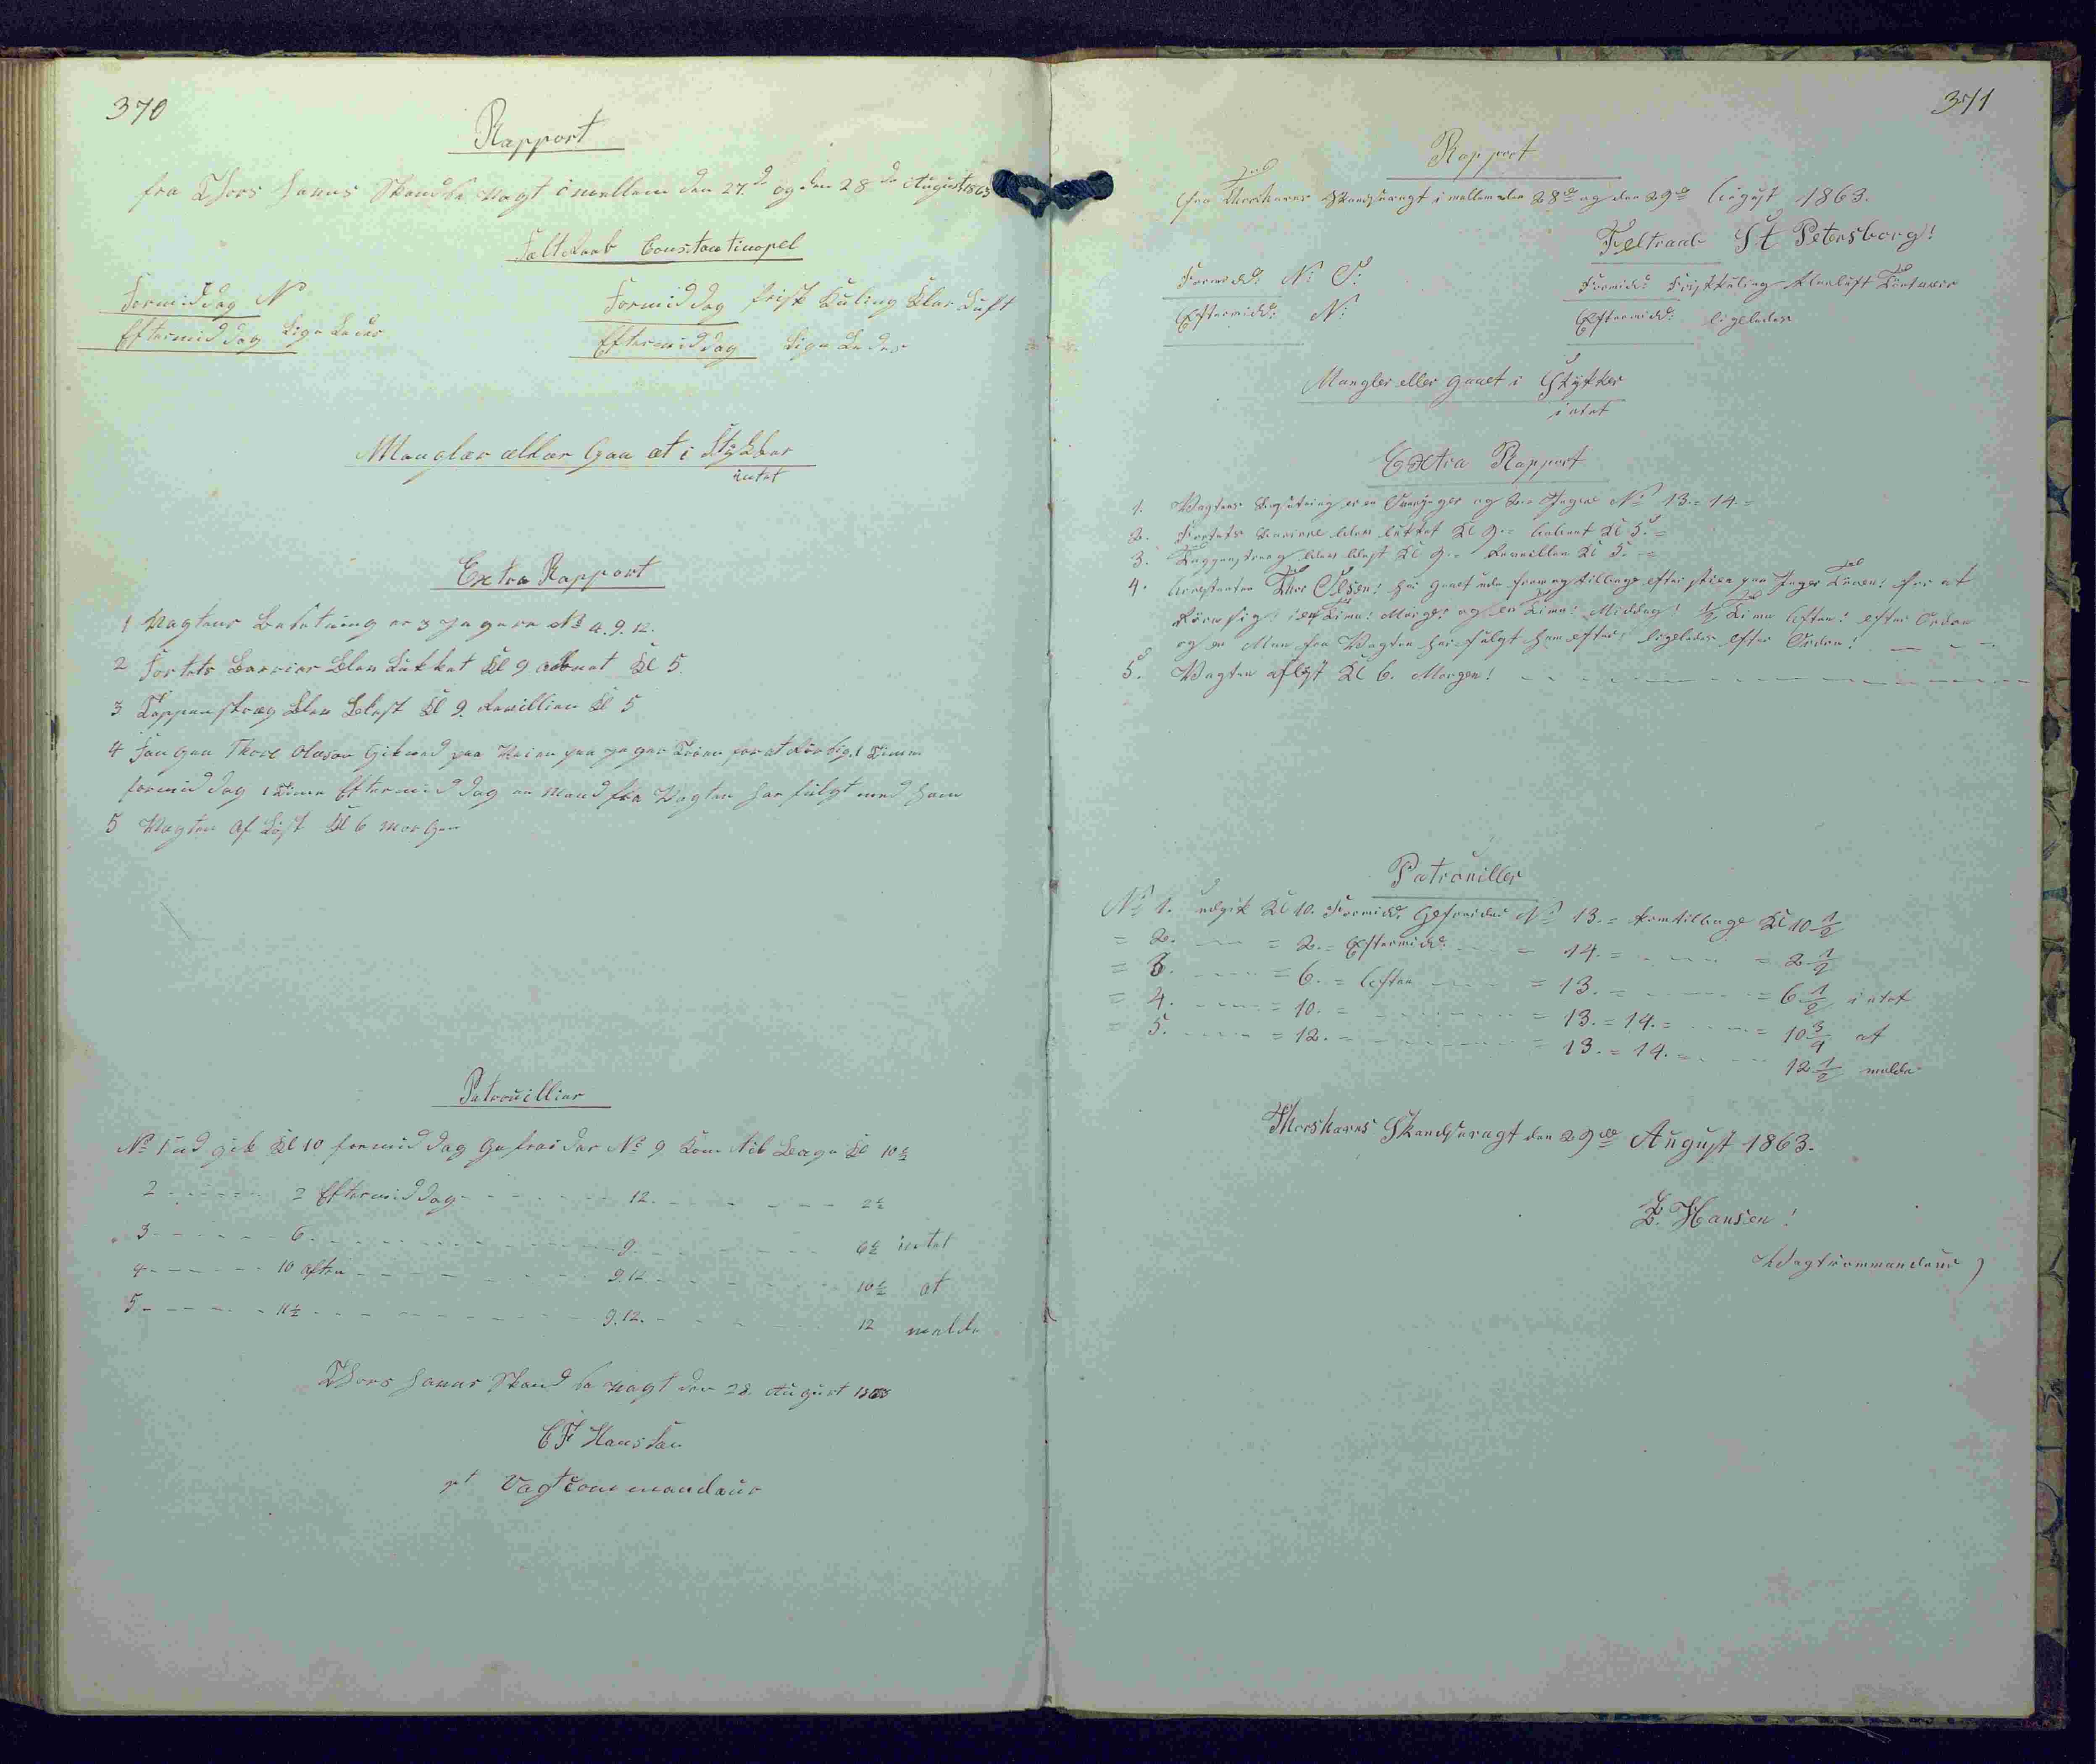 370
Rapport
fra Thors havns Skandse vagt i mellem den 27de og den 28de August 1863
Feltraab Constantinopel
Formiddag N
Formiddag frisk Kuling Klar Luft
Eftermiddag Lige Ledes
Eftermiddag Lige Ledes
Mangler eller Gaaet i Stykker
intet
Extra Rapport
1 Vagtens Besetning er 3 Jægere No 4. 9. 12.
2 Fortets Barrier blev Lukket Kl 9 aabnet Kl 5
3 Tappenstræg blev blest Kl 9. Revillien Kl 5
4 Fangen Thore Olesen Gik paa Veien paa for at Rør sig 1 Time
formiddag 1 Time Eftermiddag en Mand fra Vagten har fulgt med ham
5 Vagten af Løst Kl 6 morgen
Patrouillier
No 1 ud gik Kl 10 formiddag Gefreider No 9 Kom tilbage Kl 10½
2 - - - - - 2 Eftermiddag - - - - - 12. - - - - - 2½
3 - - - - - 6 - - - - - 9 - - - - - 6½ intet
4 - - - - - 10 Aften - - - - - 9.12 - - - - - 10½ at
5 - - - - - 11½ - - - - - 9.12. - - - - - 12 melde
Thors havns Skandse vagt den 28. August 1863
C F Hansen
pt Vagtcommandeur
371
Rapport
fra Thorshavns Skandsevagt i mellem den 28de og den 29de August 1863.
Feltraab St Petersborg!
Formidd: N: O.
Formidd: Friskkuling klarluft
Eftermidd: N:
Eftermidd: ligeledes
Mangler eller gaaet i Stykker
intet
Extra Rapport
1. Vagtens Besætning er en Overjæger og to Jægere No 13. = 14. =
2. Fortets Barriere blev lukket Kl 9. = aabnet Kl 5. =
3. Tappenstræg blev blest Kl 9. = Reveillen Kl 5. =
4. Arrestanten Thor Olsen! har gaaet frem og tilbage efter for at
Røre sig: Time: Morgen og en Time: Middag! ½ Time Aften: efter Ordre
og en Man fra Vagten har fulgt ham efter, ligeledes efter Ordre!
5. Vagten afløst Kl 6. Morgen!
Patrouiller
No 1. udgik Kl 10. Formidd: Gefreider No 13. = komtilbage Kl 10½
= 2. - - = 2. = Eftermidd: - - = 14. = - - = 2½
= 3. - - = 6. = Aften - - = 13. = - - = 6½ intet
= 4. - - = 10. = - - = 13. = 14. = - - = 10¾ at
= 5. - - = 12. = - - = 13. = 14. = - - 12½ melde
Thorshavns Skandsevagt den 29de August 1863.
Z. Hansen!
Vagtkommandeur